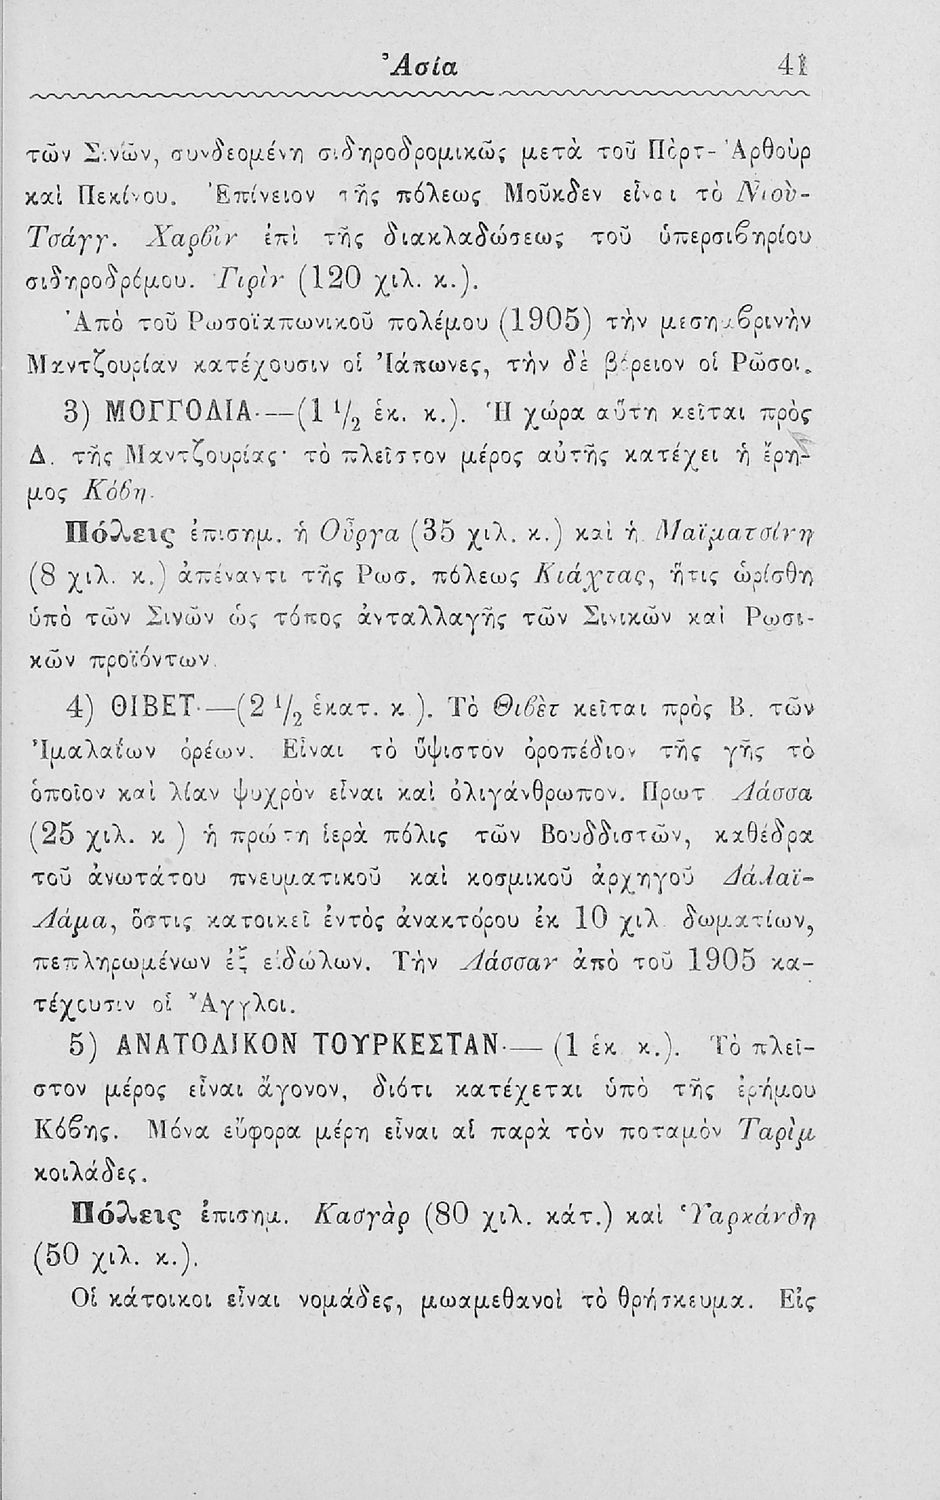 Ἀσία 41
τῶν Σινῶν, συνδεομένη σιδηροδρομικῶς μετὰ τοῦ Πὸρτ-Ἀρθοὺρ
καὶ Πεκίνου. Ἐπίνειον τῆς πόλεως Μοῦκδεν εἶναι τὸ Νιοὺ-
Τσάγγ. Χαρβὶν ἐπὶ τῆς διακλαδώσεως τοῦ ὑπερσιβηρίου
σιδηροδρόμου. Γιρὶν (120 χιλ. κ.).
Ἀπὸ τοῦ Ρωσοϊαπωνικοῦ πολέμου (1905) τὴν μεσημβρινὴν
Μαντζουρίαν κατέχουσιν οἱ Ἰάπωνες, τὴν δὲ βόρειον οἱ Ρῶσοι.
3) ΜΟΓΓΟΛΙΑ.—(1 1/2 ἑκ. κ.). Ἡ χώρα αὕτη κεῖται πρὸς
Δ. τῆς Μαντζουρίας· τὸ πλεῖστον μέρος αὐτῆς κατέχει ἡ ἔρη-
μος Κόβη.
Πόλεις ἐπισημ. ἡ Οὖργα (35 χιλ. κ.) καὶ ἡ Μαϊματσίνη
(8 χιλ. κ.) ἀπέναντι τῆς Ρωσ. πόλεως Κιάχτας, ἥτις ὡρίσθη
ὑπὸ τῶν Σινῶν ὡς τόπος ἀνταλλαγῆς τῶν Σινικῶν καὶ Ρωσι-
κῶν προϊόντων.
4) ΘΙΒΕΤ.—(2 1/2 ἑκατ. κ.). Τὸ Θιβὲτ κεῖται πρὸς Β. τῶν
Ἱμαλαΐων ὀρέων. Εἶναι τὸ ὕψιστον ὀροπέδιον τῆς γῆς τὸ
ὁποῖον καὶ λίαν ψυχρὸν εἶναι καὶ ὀλιγάνθρωπον. Πρωτ. Λάσσα
(25 χιλ. κ.) ἡ πρώτη ἱερὰ πόλις τῶν Βουδδιστῶν, καθέδρα
τοῦ ἀνωτάτου πνευματικοῦ καὶ κοσμικοῦ ἀρχηγοῦ Δάλαϊ-
Λάμα, ὅστις κατοικεῖ ἐντὸς ἀνακτόρου ἐκ 10 χιλ. δωματίων,
πεπληρωμένων ἐξ εἰδώλων. Τὴν Λάσσαν ἀπὸ τοῦ 1905 κα-
τέχουσιν οἱ Ἄγγλοι.
5) ΑΝΑΤΟΛΙΚΟΝ ΤΟΥΡΚΕΣΤΑΝ.— (1 ἑκ. κ.). Τὸ πλεῖ-
στον μέρος εἶναι ἄγονον, διότι κατέχεται ὑπὸ τῆς ἐρήμου
Κόβης. Μόνα εὔφορα μέρη εἶναι αἱ παρὰ τὸν ποταμὸν Ταρὶμ
κοιλάδες.
Πόλεις ἐπισημ. Κασγὰρ (80 χιλ. κάτ.) καὶ Ὑαρκάνδη
(50 χιλ. κ.).
Οἱ κάτοικοι εἶναι νομάδες, μωαμεθανοὶ τὸ θρήσκευμα. Εἰς